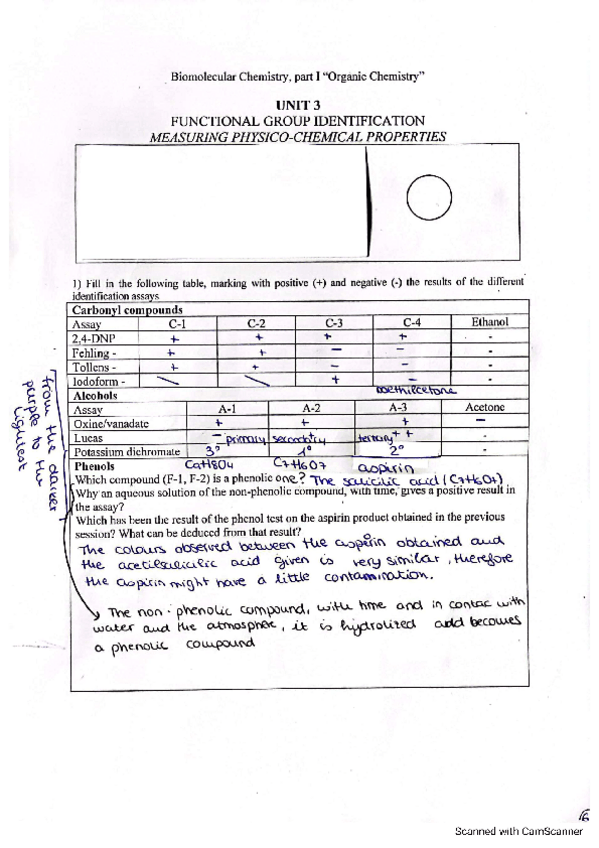 Biomolecular Chemistry, part I “Organic Chemistry”
UNIT 3
FUNCTIONAL GROUP IDENTIFICATION
MEASURING PHYSICO-CHEMICAL PROPERTIES
1) Fill in the following table, marking with positive (+) and negative (-) the results of the different
identification assays
Carbonyl compounds
Assay C-1 C-2 C-3 C-4 Ethanol
2,4-DNP + + + + -
Fehling - + + - - -
Tollens - + + - - -
Iodoform - + -
Alcohols
Assay A-1 A-2 A-3 Acetone
Oxine/vanadate + + + -
Lucas - primary secondary tertiary + + -
Potassium dichromate 3° 1° 2° -
Phenols C9H8O4 C7H6O3 aspirin
Which compound (F-1, F-2) is a phenolic one? The salicilic acid
Why an aqueous solution of the non-phenolic compound, with time, gives a positive result in
the assay?
Which has been the result of the phenol test on the aspirin product obtained in the previous
session? What can be deduced from that result?
The colours observed between the aspirin obtained and
the acetilsalicilic acid given is very similar, therefore
the aspirin might have a little contamination.
The non-phenolic compound, with time and in contac with
water and the atmosphere, it is hydrolized and becomes
a phenolic compound
from the darker
purple to the
lightest
16
Scanned with CamScanner